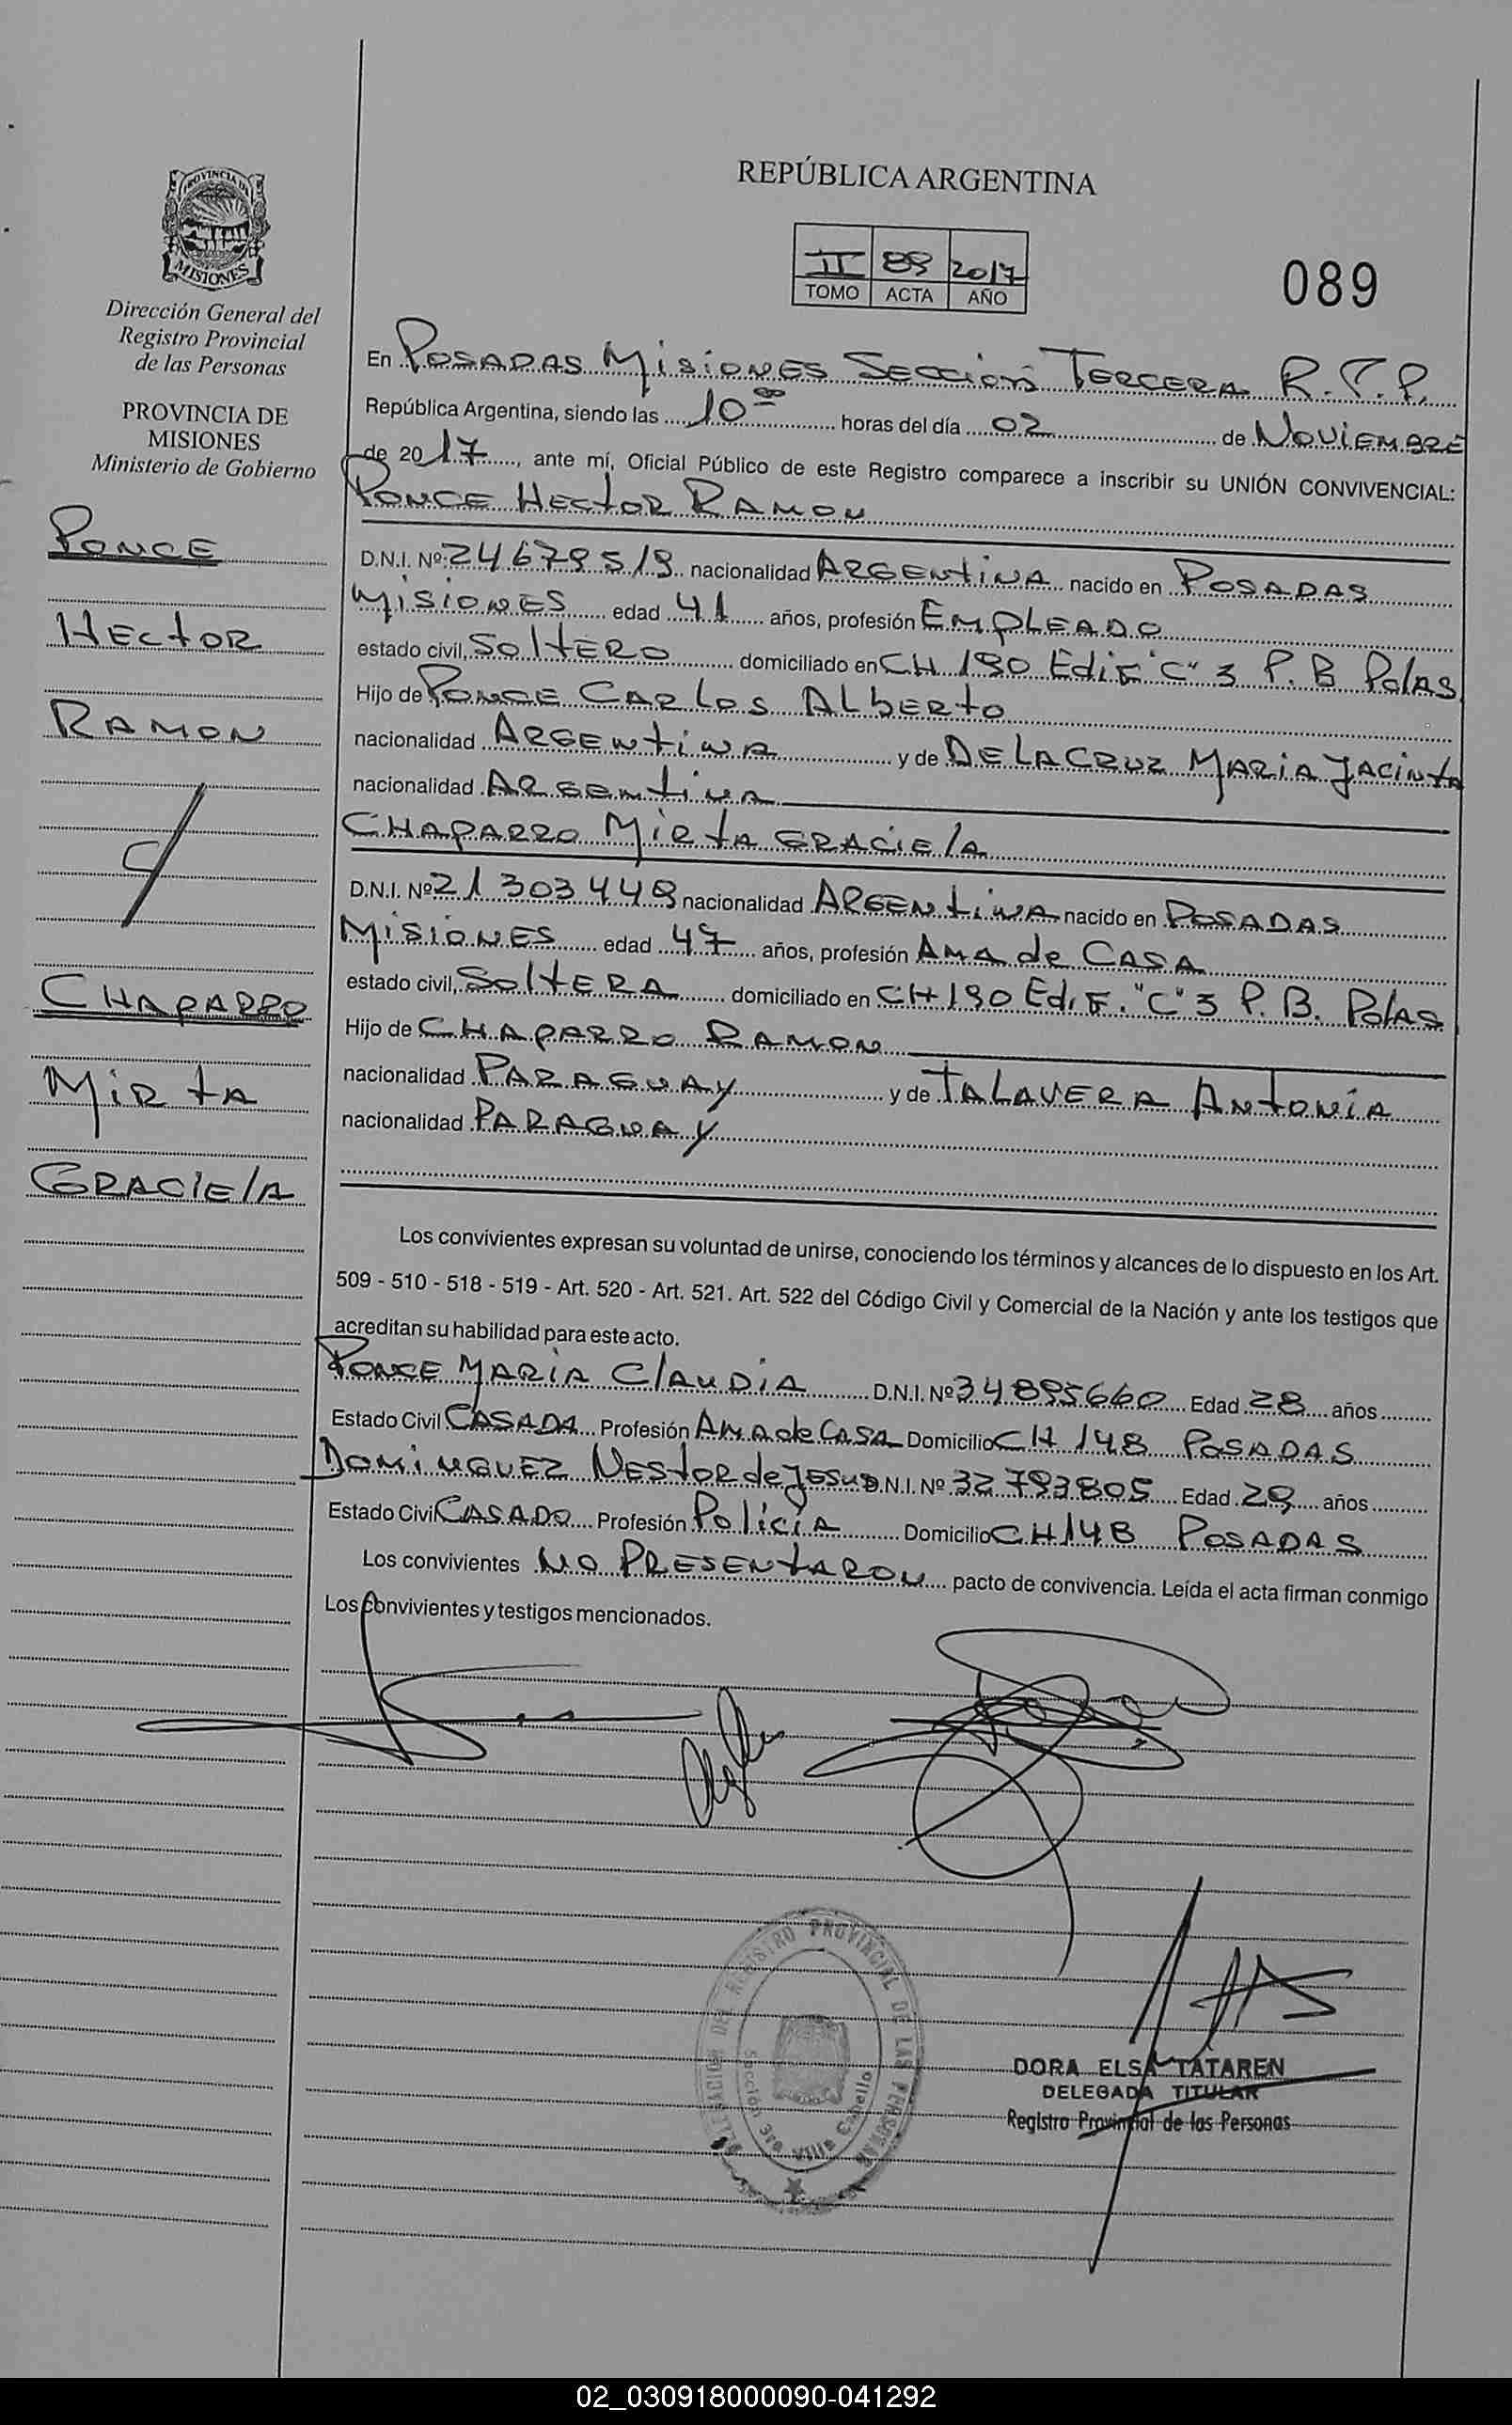 PROVINCIA DE
MISIONES
Dirección General del
Registro Provincial
de las Personas
PROVINCIA DE
MISIONES
Ministerio de Gobierno
PONCE
HECTOR
RAMON
C/
CHAPARRO
MIRTA
GRACIELA
REPÚBLICA ARGENTINA
II 89 2017
TOMO ACTA AÑO
089
En POSADAS MISIONES SECCION TERCERA R.P.P.
República Argentina, siendo las 10 00 horas del día 02 de NOVIEMBRE
de 2017, ante mí, Oficial Público de este Registro comparece a inscribir su UNIÓN CONVIVENCIAL:
PONCE HECTOR RAMON
D.N.I. Nº 24679519 nacionalidad ARGENTINA nacido en POSADAS
MISIONES edad 41 años, profesión EMPLEADO
estado civil, SOLTERO domiciliado en CH 190 Edif "C" 3 P.B Pdas
Hijo de PONCE CARLOS ALBERTO
nacionalidad ARGENTINA y de DELACRUZ MARIA JACINTA
nacionalidad ARGENTINA
CHAPARRO MIRTA GRACIELA
D.N.I. Nº 21303449 nacionalidad ARGENTINA nacido en POSADAS
MISIONES edad 47 años, profesión AMA de CASA
estado civil, SOLTERA domiciliado en CH 190 Edif. "C" 3 P.B. Pdas
Hijo de CHAPARRO RAMON
nacionalidad PARAGUAY y de TALAVERA ANTONIA
nacionalidad PARAGUAY
Los convivientes expresan su voluntad de unirse, conociendo los términos y alcances de lo dispuesto en los Art.
509 - 510 - 518 - 519 - Art. 520 - Art. 521. Art. 522 del Código Civil y Comercial de la Nación y ante los testigos que
acreditan su habilidad para este acto.
PONCE MARIA CLAUDIA D.N.I. Nº 34895660 Edad 28 años
Estado Civil CASADA Profesión AMA de CASA Domicilio CH 148 POSADAS
DOMINGUEZ NESTOR de JESUS D.N.I. Nº 32793805 Edad 29 años
Estado Civil CASADO Profesión POLICIA Domicilio CH 148 POSADAS
Los convivientes NO PRESENTARON pacto de convivencia. Leída el acta firman conmigo
Los convivientes y testigos mencionados.
DELEGACION DEL REGISTRO PROVINCIAL DE LAS PERSONAS
Sección 3ra Villa Cabello
DORA ELSA TATAREN
DELEGADA TITULAR
Registro Provincial de las Personas
02_030918000090-041292